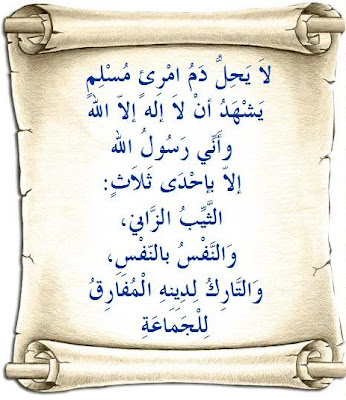 لاَ يَحِلُّ دَمُ امْرِئٍ مُسْلِمٍ
يَشْهَدُ أنْ لاَ إلهَ إلاّ الله
وأَنِّي رَسُولُ الله
إلاّ بإحْدَى ثَلاَثٍ:
الثَّيِّبُ الزَّانِي،
وَالنَّفْسُ بالنّفْسِ،
وَالتَّارِكُ لِدِينِهِ الْمُفَارِقُ
لِلْجَمَاعَةِ